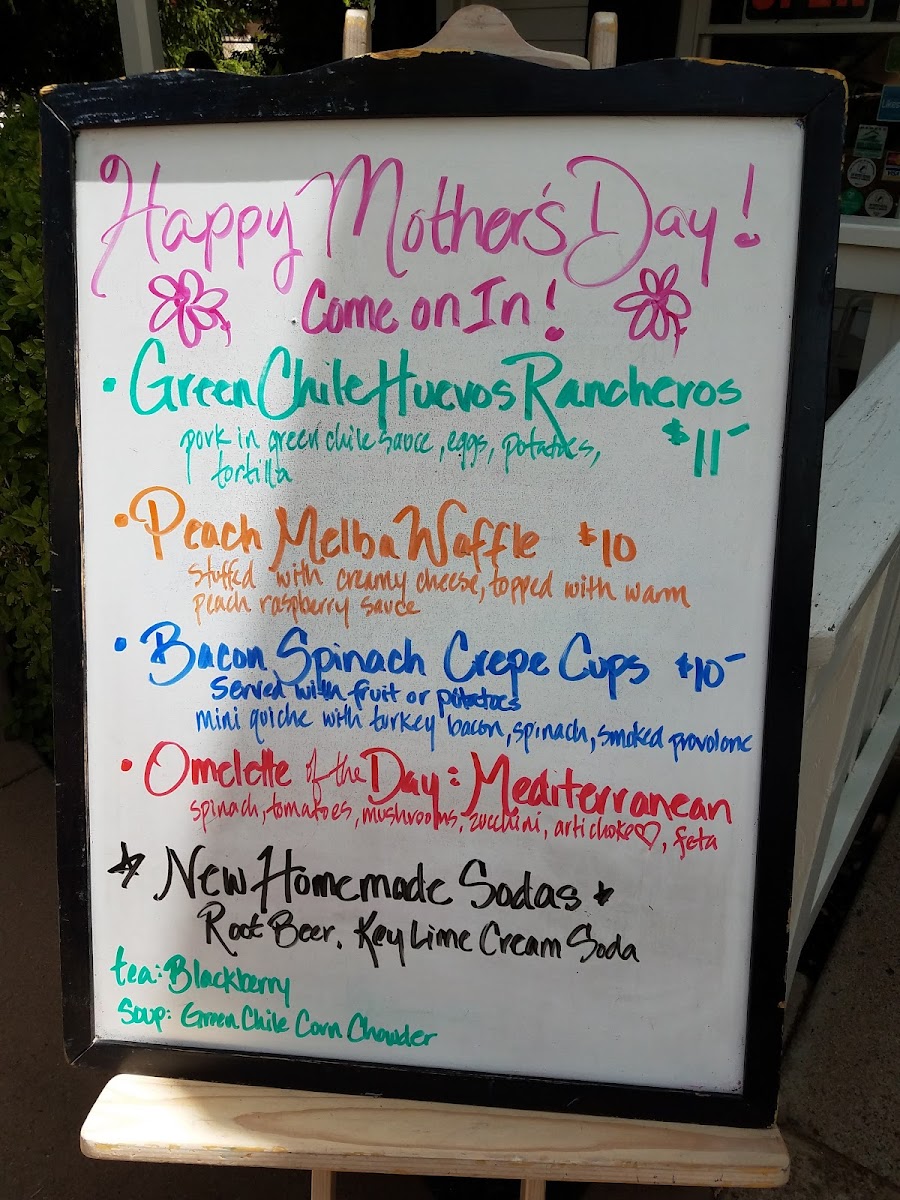 OPEN
Happy Mother's Day!
Come on In!
• Green Chile Huevos Rancheros
pork in green chile sauce, eggs, potatoes, $11-
tortilla
• Peach Melba Waffle $10
stuffed with creamy cheese, topped with warm
peach raspberry sauce
• Bacon Spinach Crepe Cups $10-
Served with fruit or potatoes
mini quiche with turkey bacon, spinach, smoked provolone
• Omelette of the Day: Mediterranean
spinach, tomatoes, mushrooms, zucchini, artichoke♡, feta
☆ New Homemade Sodas ☆
Root Beer, Key Lime Cream Soda
tea: Blackberry
Soup: Green Chile Corn Chowder